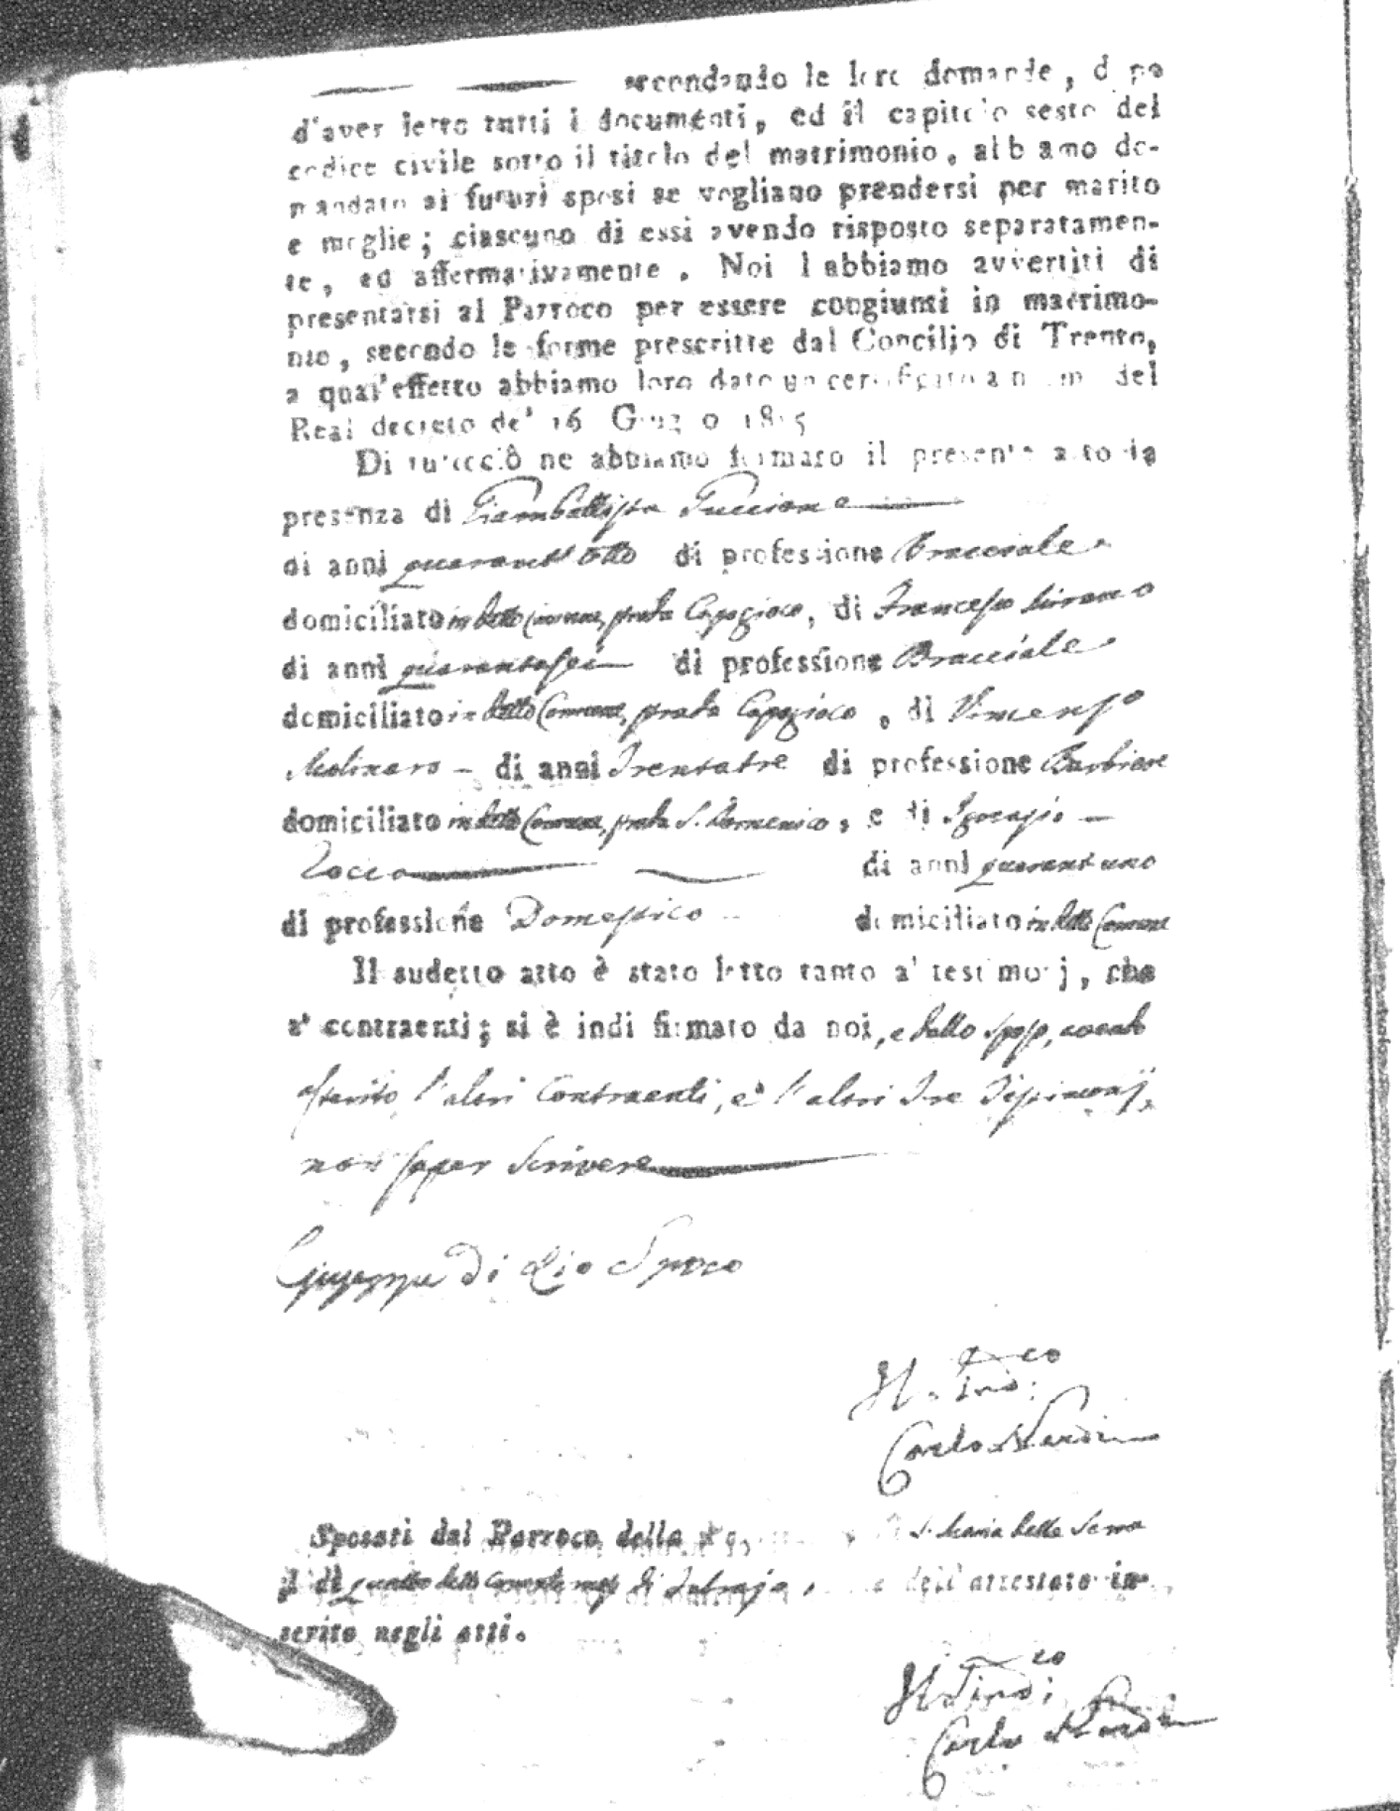 secondando le loro domande, dopo
d'aver letto tutti i documenti, ed il capitolo sesto del
codice civile sotto il titolo del matrimonio, abbiamo do-
mandato ai futuri sposi se vogliano prendersi per marito
e moglie; ciascuno di essi avendo risposto separatamen-
te, ed affermativamente. Noi l abbiamo avvertiti di
presentarsi al Parroco per essere congiunti in matrimo-
nio, secondo le forme prescritte dal Concilio di Trento,
a qual'effetto abbiamo loro dato un certificato a norma del
Real decreto de' 16 Giugno 1815
Di tutto ciò ne abbiamo formato il presente atto in
presenza di Giambattista Puccione
di anni quarant'otto di professione Bracciale
domiciliato in detto Comune, strada Capogioco, di Francesco
di anni quarantasei di professione Bracciale
domiciliato in detto Comune, strada Capogioco, di Vincenzo
Molinaro - di anni Trentatre di professione Barbiere
domiciliato in detto Comune, strada S. Domenico, e di Ignazio -
Rocco di anni quarant'uno
di professione Domestico domiciliato in detto Comune
Il sudetto atto è stato letto tanto a' testimonj, che
a' contraenti; si è indi firmato da noi, e dallo sposo, avendo
asserito l'altri Contraenti, e l'altri tre Testimonj,
non saper scrivere
Giuseppe Di Lio Sposo
Il Sind:co
Carlo Nardi
Sposati dal Parroco della S. Maria della Serra
il di quattro detto corrente mese di Febrajo, dell'attestato in-
serito negli atti.
Il Sind:co
Carlo Nardi